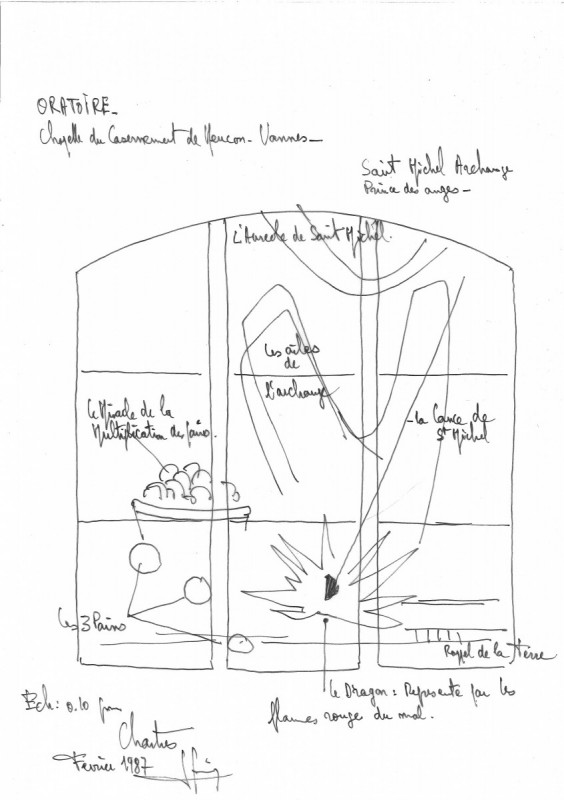 ORATOIRE_
Chapelle du Casernement de Meucon - Vannes_
Saint Michel Archange
Prince des anges_
L'Aureole de Saint Michel.
Les ailes
de
L'archange
Le Miracle de la
Multiplication des pains.
_la lance de
St Michel
Les 3 Pains
Rappel de la terre
Le Dragon : Represente par les
flames rouge du mal.
Ech : 0.10 pm
Chartres
Février 1987